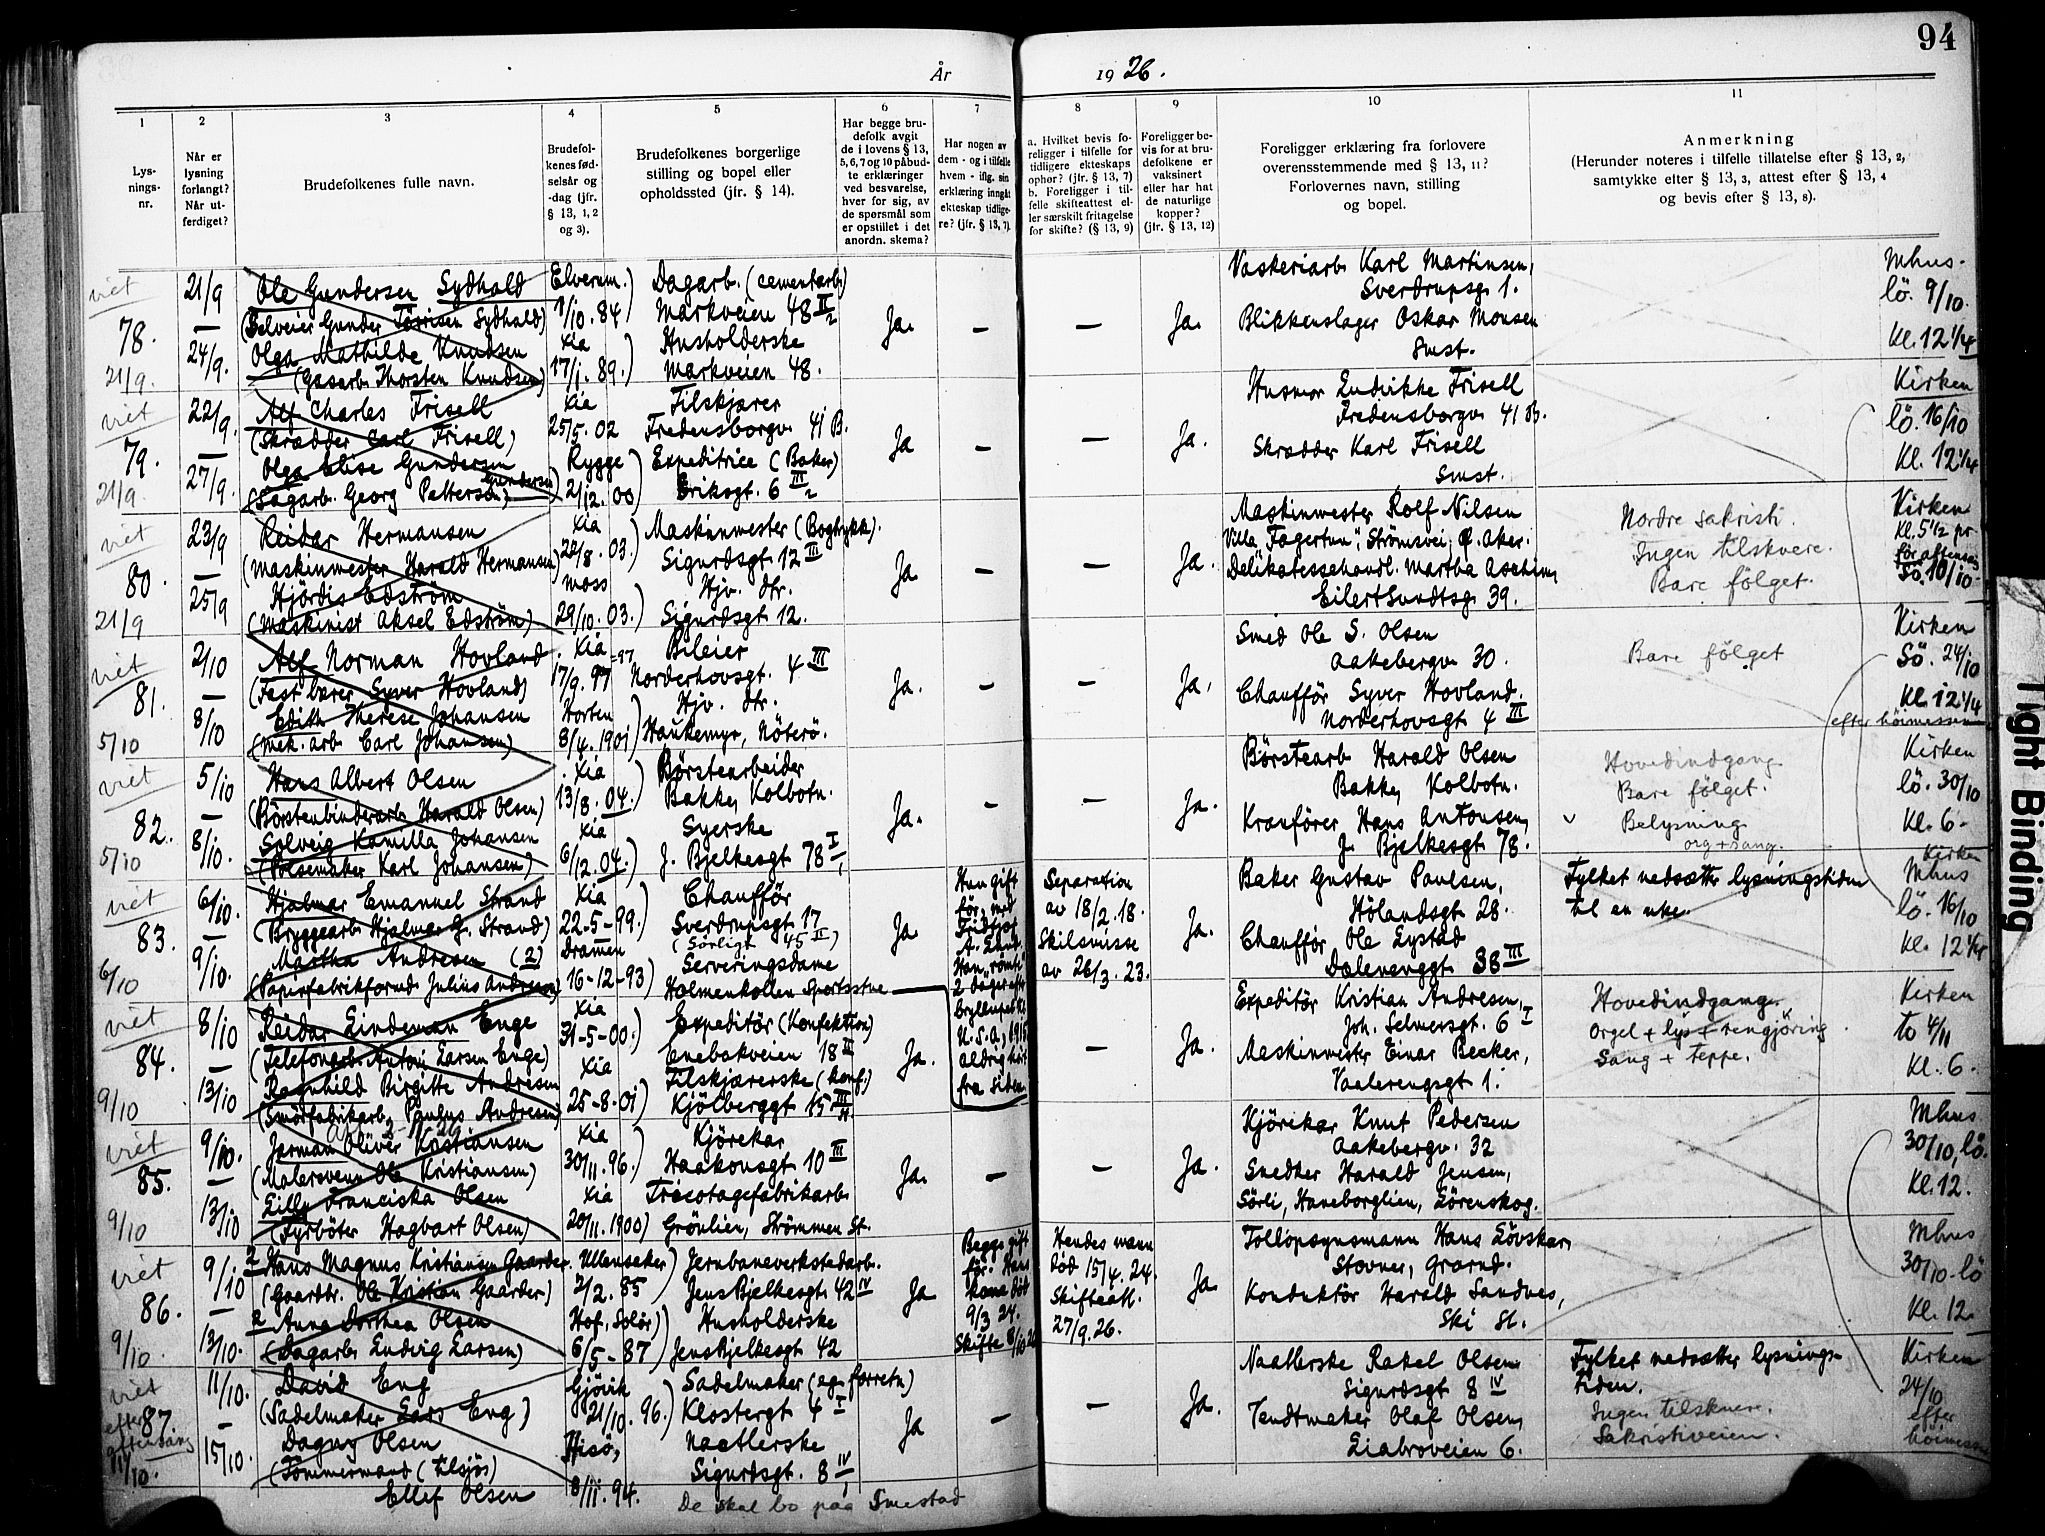 94
År 1926.
1 2 3 4 5 6 7 8 9 10 11
Lys-
nings-
nr.
Når er
lysning
forlangt?
Når ut-
ferdiget?
Brudefolkenes fulle navn.
Brudefol-
kenes fød-
selsår og
-dag (jfr.
§ 13, 1, 2
og 3).
Brudefolkenes borgerlige
stilling og bopel eller
opholdssted (jfr. § 14).
Har begge bru-
defolk avgit
de i lovens § 13,
5, 6, 7 og 10 påbud-
te erklæringer
ved besvarelse,
hver for sig, av
de spørsmål som
er opstillet i det
anordn. skema?
Har nogen av
dem - og i tilfelle
hvem - iflg. sin
erklæring inngåt
ekteskap tidlige-
re? (jfr. § 13, 7).
a. Hvilket bevis fo-
religger i tilfelle for
tidligere ekteskaps
ophør? (jfr. § 13, 7)
b. Foreligger i til-
felle skifteattest el-
ler særskilt fritagelse
for skifte? (§ 13, 9)
Foreligger be-
vis for at bru-
defolkene er
vaksinert
eller har hat
de naturlige
kopper?
(jfr. § 13, 12)
Foreligger erklæring fra forlovere
overensstemmende med § 13, 11?
Forlovernes navn, stilling
og bopel.
Anmerkning
(Herunder noteres i tilfelle tillatelse efter § 13, 2,
samtykke efter § 13, 3, attest efter § 13, 4
og bevis efter § 13, 8).
viet
78.
21/9.
21/9
—
24/9.
Ole Gundersen Sydhald
(Selveier Gunder Tørrisen Sydhald)
Olga Mathilde Knudsen
(Gasarb. Thorsten Knudsen)
Elverum.)
1/10. 84)
Kia
17/1. 89.)
Dagarb. (cementarb)
Markveien 48 II
Husholderske
Markveien 48.
Ja.
—
—
Ja.
Vaskeriarb. Karl Martinsen,
Sverdrupsg. 1.
Blikkenslager Oskar Monsen
Smst.
Mhus.
lö. 9/10.
Kl. 12 1/4
viet
79.
21/9.
22/9.
—
27/9.
Alf Charles Frisell
(Skrædder Carl Frisell)
Olga Elise Gundersen
(Sagarb. Georg Pettersen, Gundersen)
Kia
25/5. 02
Rygge)
2/12. 00)
Tilskjærer
Fredensborgv. 41 B.
Expeditrice (Baker)
Eriksgt. 6 III
Ja
—
—
Ja.
Husmor Ludvikke Frisell
Fredensborgv. 41 B.
Skrædder Karl Frisell
Smst.
Kirken
lö. 16/10
Kl. 12 1/4
viet
80.
21/9
23/9
—
25/9
Reidar Hermansen
(Maskinmester Harald Hermansen)
Hjördis Edström
(Maskinist Aksel Edström)
Kia
22/8. 03.)
Moss
29/10. 03.)
Maskinmester (Bogtrykk).
Sigurdsgt 12 III
Hjv. dtr.
Sigurdsgt 12.
Ja
—
—
Ja.
Maskinmester Rolf Nilsen
Villa "Fagertun", Strömsvei, Ø. Aker.
Delikatessehandl. Martha Aschim,
Eilert Sundtsg. 39.
Nordre sakristi.
Ingen tilskuere.
Bare fölget.
Kirken
Kl. 5 1/2 pr.
för aftensang
Sö. 10/10
viet
81.
5/10
2/10
—
8/10
Alf Norman Hovland
(Fast bærer Syver Hovland)
Edith Therese Johansen
(Mek. arb. Carl Johansen)
Kia
17/9. 97 =97
Horten
8/4. 1901)
Bileier
Norderhovsgt. 4 III
Hjv. dtr.
Haukemyr, Nöterö.
Ja.
—
—
Ja.
Smed Ole S. Olsen
Aakebergv. 30.
Chaufför Syver Hovland.
Norderhovsgt 4 III
Bare fölget
Kirken
Sö. 24/10
Kl. 12 1/4
efter höimessen
viet
82.
5/10
5/10
—
8/10.
Hans Albert Olsen
(Börstenbinderarb. Harald Olsen)
Solveig Kamilla Johansen
(Pölsemaker Karl Johansen)
Kia
13/8. 04.)
Kia
6/12. 04.)
Börstearbeider
Bakke, Kolbotn.
Syerske
J. Bjelkesgt 78 I
Ja.
—
—
Ja.
Börstearb. Harald Olsen
Bakke, Kolbotn.
Kranförer Hans Antonsen,
J. Bjelkesgt 78.
Hovedindgang
Bare fölget.
Belysning
org + sang.
Kirken
lö. 30/10
Kl. 6.
viet
83.
6/10
6/10.
9/10.
Hjalmar Emanuel Strand
(Bryggearb. Hjalmar G. Strand)
Martha Andresen (2)
(Papirfabrikformd. Julius Andresen)
Kia
22-5-99.)
Dramen
16-12-93)
Chaufför
Sverdrupsgt 17
(Sörligt 45 II)
Serveringsdame
Holmenkollen Sportsstue
Ja
Hun gift
för, med
A. Lund.
Han "römte"
2 dager eft
bryllupet til
U.S.A, 1915
aldrig hört
fra siden
Separation
av 18/2. 18.
Skilsmisse
av 26/3. 23.
Ja.
Baker Gustav Paulsen,
Hölandsgt 28.
Chaufför Ole Lystad
Dælenenggt 38 III
Fylket nedsætter lysningstiden
til en uke.
Kirken
Mhus
lö. 16/10
Kl. 12 1/4
viet
84.
9/10
8/10
—
13/10
Reidar Lindeman Enge
(Telefonarb. Anton Larsen Enge)
Ragnhild Birgitte Andresen
(Smörfabrikarb. Paulus Andresen)
Kia
31-5-00.)
Kia
25-8-01)
Expeditör (Konfektion)
Enebakveien 18 II
Tilskjærerske (konf.)
Kjölberggt 15 III
Ja.
—
Ja.
Expeditör Kristian Andresen,
Joh. Selmersgt. 6 I
Maskinmester Einar Becker,
Vaalerengsgt 1.
Hovedindgang
Orgel + lys + rengjöring
Sang + teppe.
Kirken
to 4/11
Kl. 6.
viet
85.
9/10
9/10.
—
13/10
Jarman Oliver Kristiansen
(Malersvend Ole Kristiansen)
Lilly Franciska Olsen
(Fyrböter Hagbart Olsen)
Kia
30/11. 96.)
Kia
20/11. 1900)
Kjörekar
Haakonsgt 10 III
Tricotagefabrikarb.
Grönlien, Strömmen St.
Ja.
—
—
Ja.
Kjörekar Knut Pedersen
Aakebergv. 32
Snedker Harald Jensen,
Sörli, Haneborglien, Lörenskog.
Mhus
30/10, lö.
Kl. 12.
viet
86.
9/10.
9/10
—
13/10.
2 Hans Magnus Kristiansen Gaarder.
(Gaardbr. Ole Kristian Gaarder)
2 Anna Dorthea Olsen
(Dagarb. Ludvig Larsen)
Ullensaker)
2/2. 85
Hof, Solör)
6/5-87)
Jernbaneverkstedarb.
Jens Bjelkesgt 42 IV
Husholderske
Jens Bjelkesgt 42
Ja
Begge gift
för. Hans
kone död
9/3 24.
Skifte 8/10 26
Hendes mann
död 15/4. 24.
Skifteatt.
27/9. 26.
Ja
Tollopsynsmann Hans Lövskar,
Stovner, Grorud.
Konduktör Harald Sandnes,
Ski St.
Mhus
30/10. lö
Kl. 12.
viet
efter
aftensang
87.
11/10.
11/10.
—
15/10.
David Eng
(Sadelmaker Lars Eng)
Dagny Olsen
(Tömmermand (tilsjös)
Ellef Olsen
Gjövik
21/10. 96.)
Hisö,
8/11. 94.
Sadelmaker (eg. forretn)
Klostergt 4 I
Naatlerske
Sigurdsgt. 8 IV
De skal bo paa Smestad
Ja
—
—
Ja.
Naatlerske Rakel Olsen
Sigurdsgt 8 IV
Tendtmaker Olaf Olsen,
Liabroveien 6.
Fylket nedsætter lysnings-
tiden.
Ingen tilskuere.
Sakristiveien.
Kirken
24/10
efter
höimessen
Tight Binding